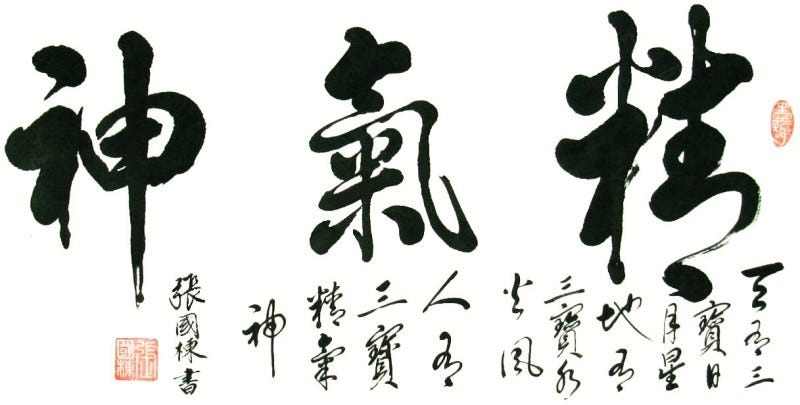 精氣神
天有三
寶日
月星
地有
三寶水
火風
人有
三寶
精氣
神
張國棟書
張國棟